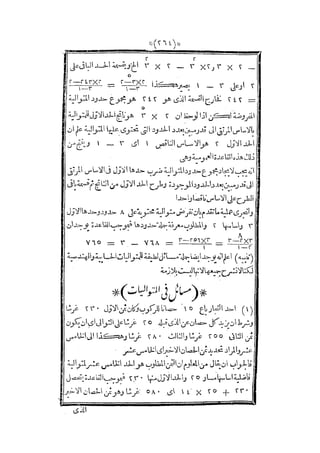 (٢٦٤)
— ٢ × ٣ و ٢ × ٣ — ٢ × ٣ الخ وبقسمة الحد الباقى على
٢ او على ٣ — ١ يصير هكذا ٢×٣ — ٢ / ٣ — ١ = ٢ — ٢٤٣×٢ / ٣ — ١
= ٢٤٢ فخارج القسمة الذى هو ٢٤٢ هو مجموع حدود المتوالية
المفروضة لكن اذا لوحظ ان ٢ × ٣ هو ناتج الحد الاول للمتوالية
بالاساس المرتقى الى قدر مبين بعدد الحدود التى تحتوى عليها المتوالية علم ان
الحد الاول ٢ هو الاساس الناقص ١ اى ٣ — ١ وينتج من
ذلك هذه القاعدة العمومية وهى
انه يجب لايجاد مجموع حدود المتوالية ضرب حدها الاول فى الاساس المرتقى
الى قدر مبين بعدد الحدود الموجودة وطرح الحد الاول من الناتج ثم قسمة باقى
الطرح على الاساس ناقصا واحدا
ولنجرى عملية ما تقدم بان نفرض متوالية محتوية على ٨ حدود وحدها الاول
٣ واساسها ٢ والمطلوب معرفة جملة حدودها فبموجب القاعدة يوجد ان
٣×٢ — ٣ / ٢ — ١ = ٣ — ٢٥٦×٣ / ٢ — ١ = ٣ — ٧٦٨ = ٧٦٥
(تنبيه) اعلم انه يوجد ايضا جملة مسائل لطيفة للمتواليات الحسابية والهندسية
لكننا لا نشرح جميعها لانها ليست بلازمة
(مسائل فى المتواليات)
(١) احد التجار باع ١٥ حصانا للركوب وكان ثمن الاول ٢٣٠ غرشا
وشرط ان يزيد كل حصان عن الذى قبله ٢٥ غرشا على التوالى اى ان يكون
ثمن الثانى ٢٥٥ غرشا والثالث ٢٨٠ غرشا وهكذا الى الخامس
عشر والمراد تحديد ثمن الحصان الاخير اى الخامس عشر
فالجواب ان يقال من المعلوم ان الثمن المطلوب هو الحد الخامس عشر لمتوالية
تفاضلية اساسها مساو ٢٥ والحد الاول منها ٢٣٠ فبموجب القاعدة يتحصل
٢٣٠ + ٢٥ × ١٤ اى ٥٨٠ غرشا وهو ثمن الحصان الاخير
الذى